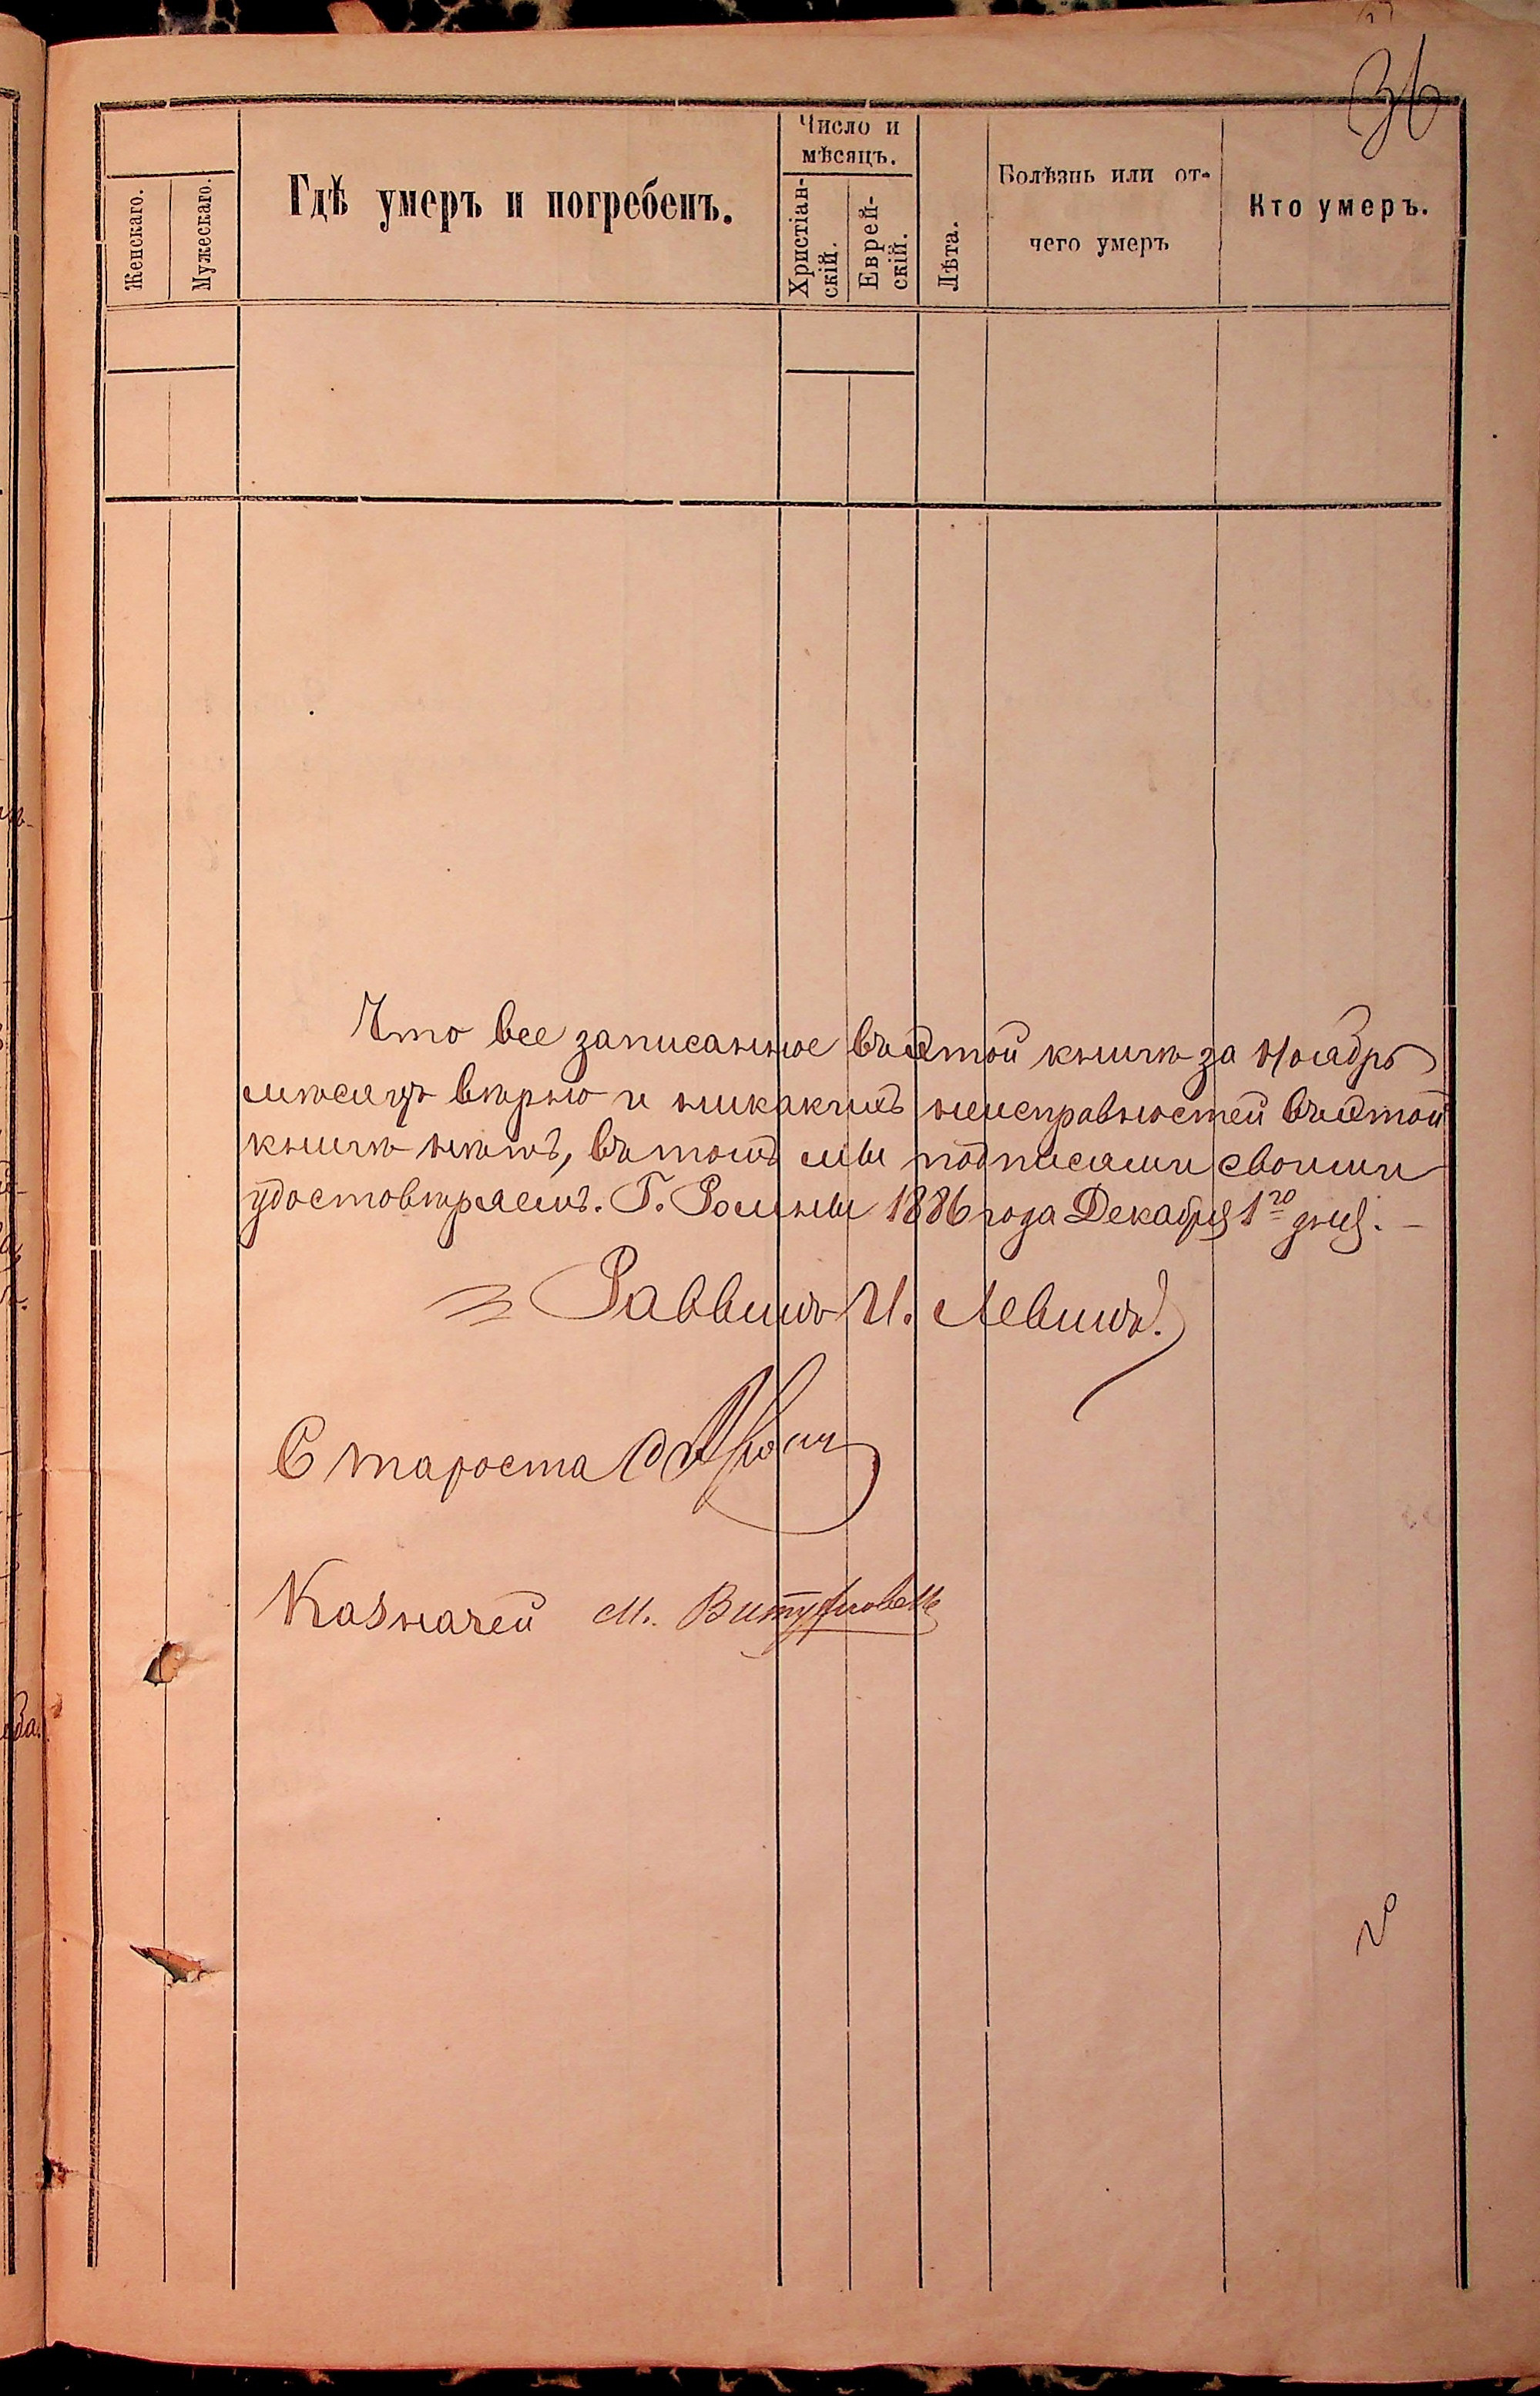 36
Число и
мѣсяцъ.
Женскаго.
Мужескаго.
Гдѣ умеръ и погребенъ.
Христіан-
скій.
Еврей-
скій.
Лѣта.
Болѣзнь или от-
чего умеръ
Кто умеръ.
Что все записанное въ этой книгѣ за Ноябрь
мѣсяцъ вѣрно и никакихъ неисправностей въ этой
книгѣ нѣтъ, въ томъ мы подписями своими
удостовѣряемъ. Г. Ромны 1886 года Декабря 1го дня. —
Раввинъ И. Левинъ.
Староста
Казначей М.